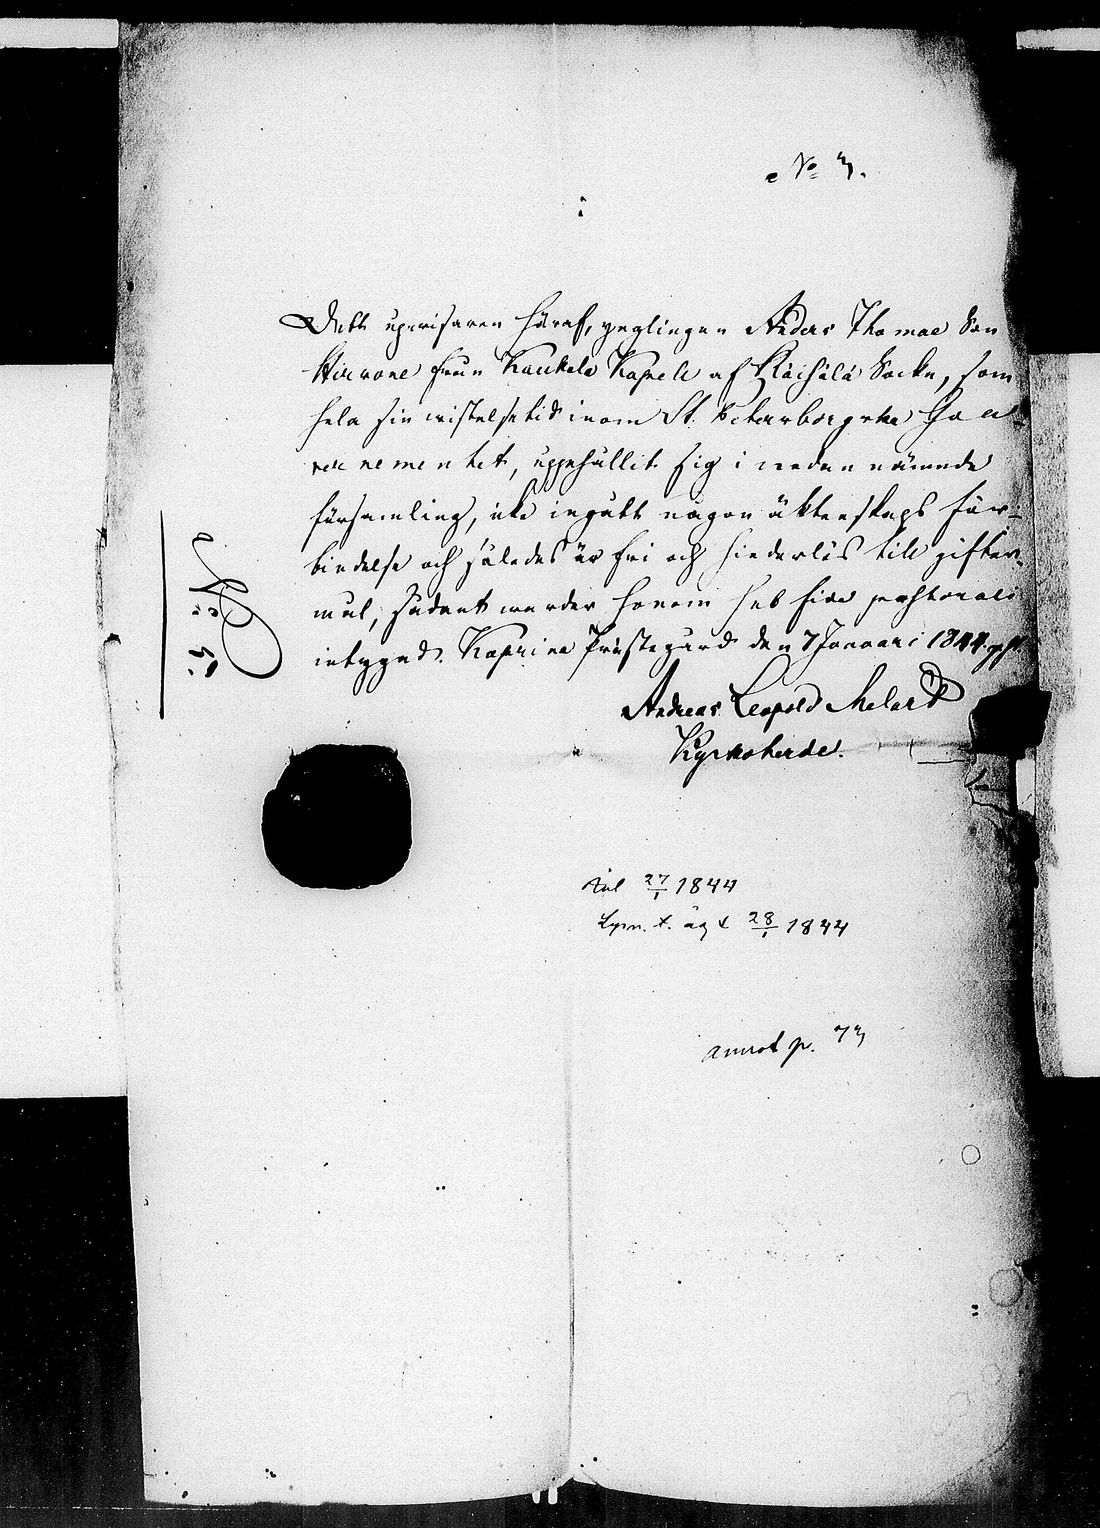 No 3.
Dett upvisaren häraf, ynglingen Anders Thomae Son
Hirvone från Kaukola Kapell af Räisälä Sockn, som
hela sin vistelsetid inom St. Peterborgska Gou-
vernementet, uppehållit sig i nedannämnde
församling, icke ingått någon äktenskaps för-
bindelse och således är fri och hinderlös till gifter-
mål, sådant warder honom sub fide pastorali
intygad. Koprina Prästegård den 7 Januari 1844.
Andreas Leopold Melart
Kyrkoherde.
No 3.
27/1 1844
Lysn. t. äg. 28/1 1844
annot p. 73